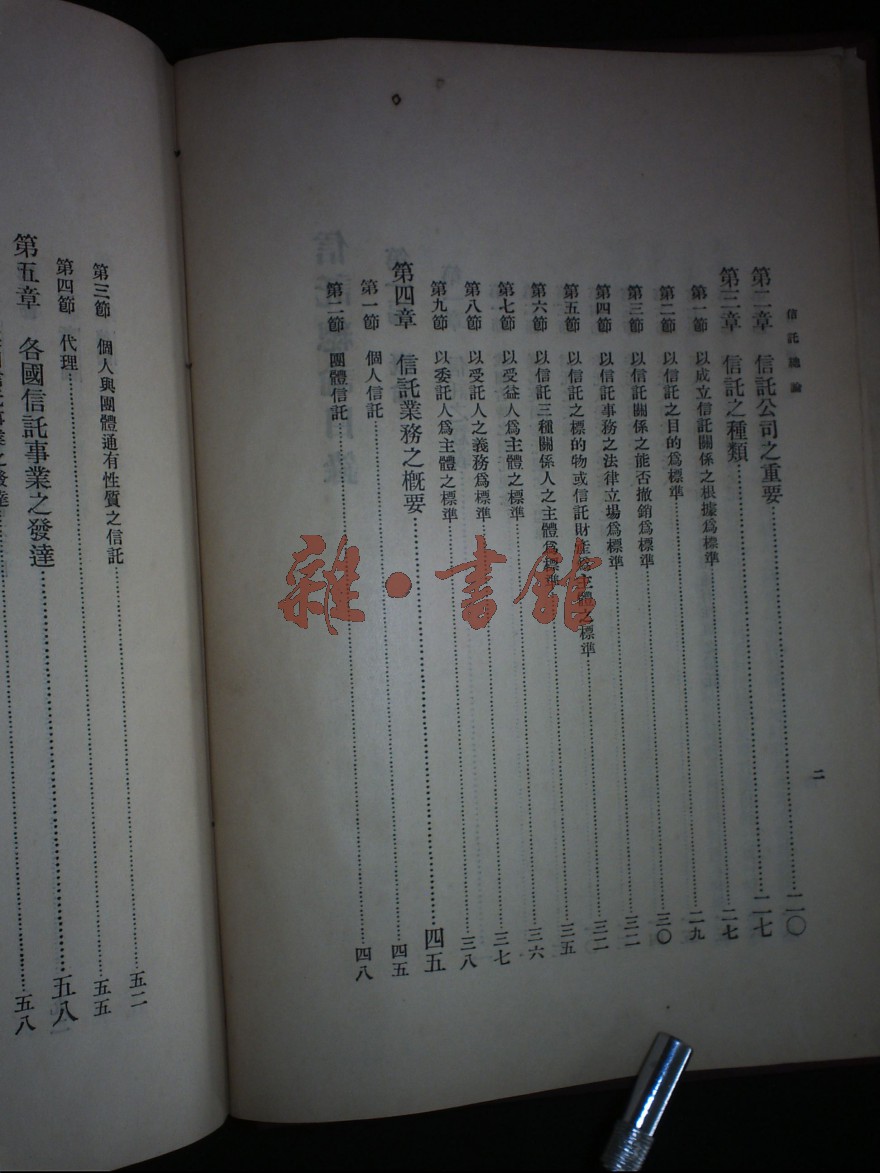 信託總論
二
第二章 信託公司之重要……二〇
第三章 信託之種類……二七
第一節 以成立信託關係之根據爲標準……二七
第二節 以信託之目的爲標準……二九
第三節 以信託關係之能否撤銷爲標準……三〇
第四節 以信託事務之法律立場爲標準……三二
第五節 以信託之標的物或信託財產爲主體之標準……三二
第六節 以信託三種關係人之主體爲標準……三五
第七節 以受益人爲主體之標準……三六
第八節 以受託人之義務爲標準……三七
第九節 以委託人爲主體之標準……三八
第四章 信託業務之概要……四五
第一節 個人信託……四五
第二節 團體信託……四八
第三節 個人與團體通有性質之信託……五二
第四節 代理……五五
第五章 各國信託事業之發達……五八
信託事業之發達……五八
雜·書館